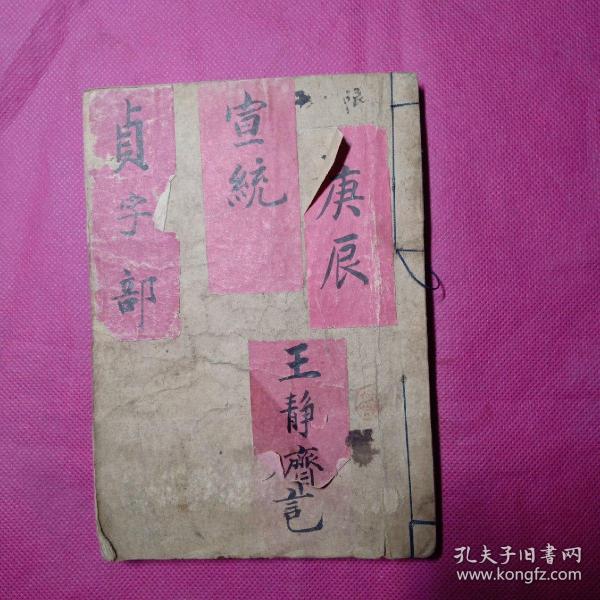 限
庚辰
宣統
貞字部
王静齋記
孔夫子旧书网
www.kongfz.com